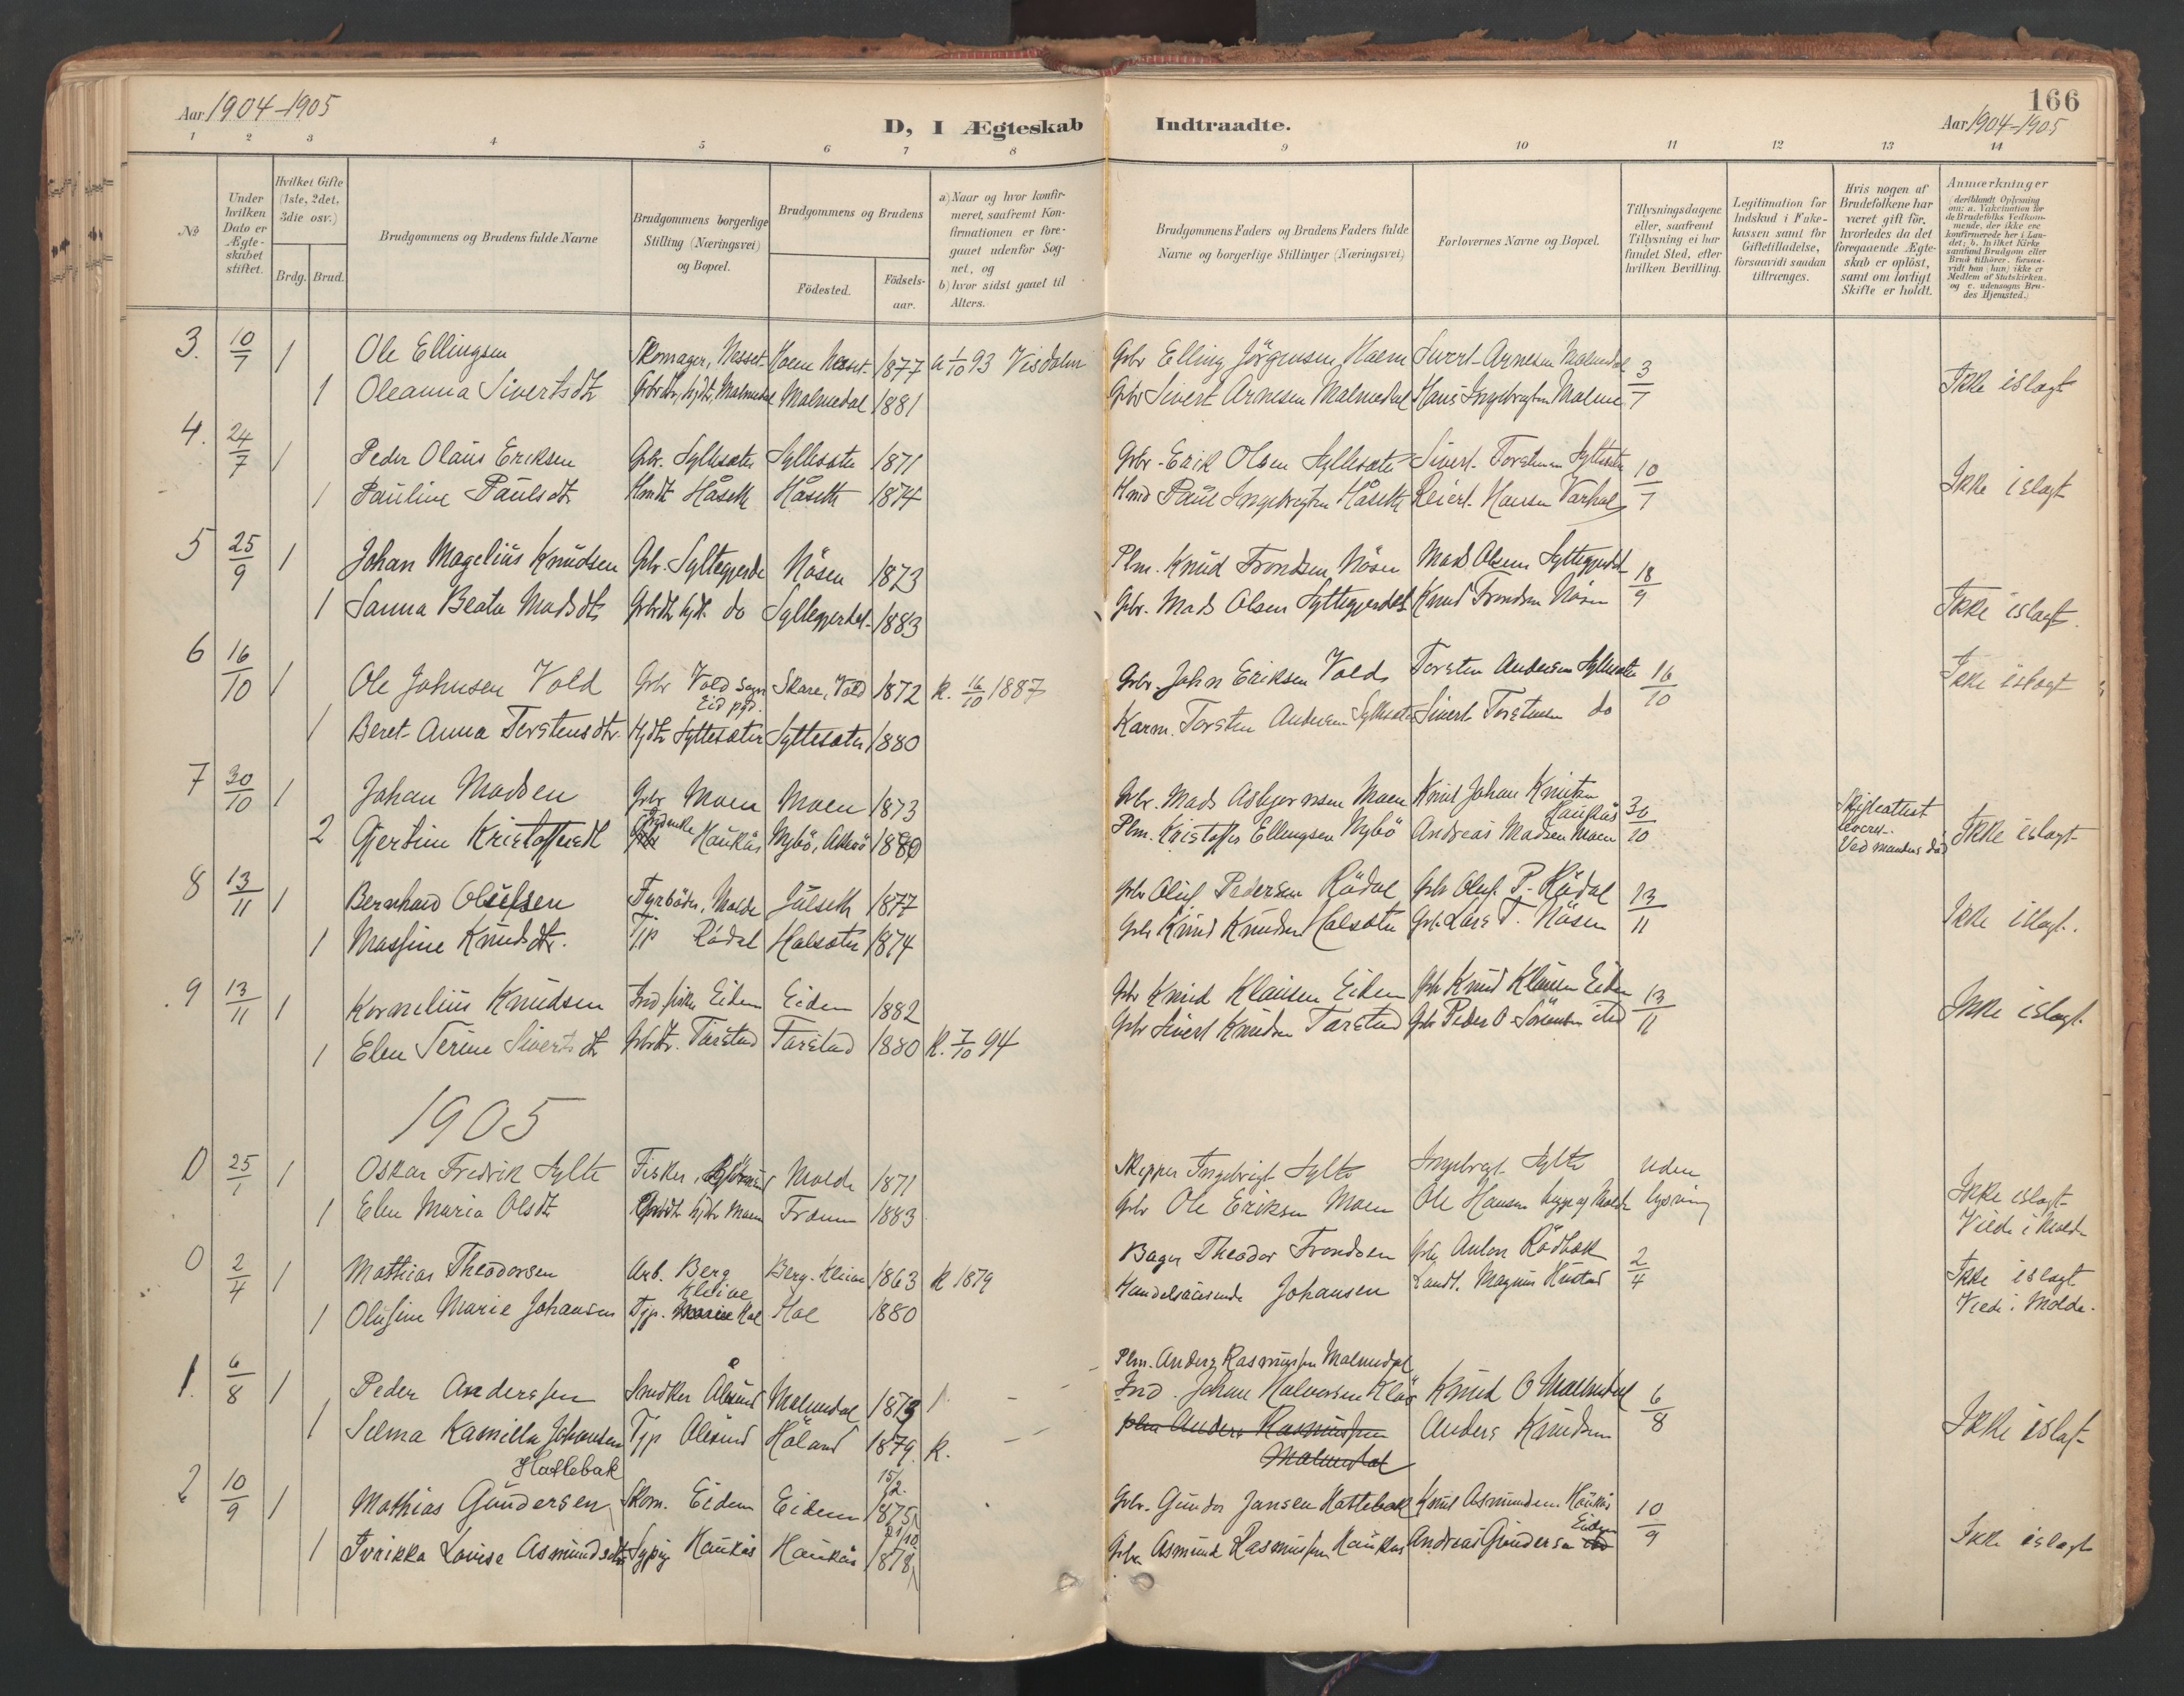 Aar 1904-1905
D, I Ægteskab Indtraadte.
166
Aar 1904-1905
1 2 3 4 5 6 7 8 9 10 11 12 13 14
No
Under hvilken Dato er Ægteskabet stiftet.
Hvilket Gifte (1ste, 2det, 3die osv.)
Brdg. Brud.
Brudgommens og Brudens fulde Navne
Brudgommens borgerlige Stilling (Næringsvei) og Bopæl.
Brudgommens og Brudens
Födested. Födsels-aar.
a) Naar og hvor konfir-
meret, saafremt Kon-
firmationen er fore-
gaaet udenfor Sog-
net, og
b) hvor sidst gaaet til
Alters.
Brudgommens Faders og Brudens Faders fulde
Navne og borgerlige Stillinger (Næringsvei)
Forlovernes Navne og Bopæl.
Tillysningsdagene
eller, saafremt
Tillysning ei har
fundet Sted, efter
hvilken Bevilling.
Legitimation for
Indskud i Enke-
kassen samt for
Giftetilladelse,
forsaavidt saadan
tiltrænges.
Hvis nogen af
Brudefolkene har
været gift før,
hvorledes da det
foregaaende Ægte-
skab er oplöst,
samt om lovligt
Skifte er holdt.
Anmærkninger
(deriblandt Oplysning
om: a. Vakcination for
de Brudefolks Vedkom-
mende, der ikke ere
konfirmerede her i Lan-
det; b. hvilket Kirke-
samfund Brudgom eller
Brud tilhörer, forsaa-
vidt han (hun) ikke er
Medlem af Statskirken,
og c. udensogns Bru-
des Hjemsted.)
3. 10/7 1 Ole Ellingsen Skomager, Nesset Hoem Nesset 1877 a 1/10 93 Visdalen Gbr Elling Jörgensen Hoem Sivert Arnesen Malmedal 3/7 Ikke islagt
1 Oleanna Sivertsdt Gbrdtr, hjdtr, Malmedal Malmedal 1881 Gbr Sivert Arnesen Malmedal Hans Ingebrigtsen Malme
4. 24/7 1 Peder Olaus Eriksen Gbr. Syltesæter Syltesæter 1871 Gbr. Erik Olsen Syltesæter Sivert Torstensen Syltesæter 10/7 Ikke islagt
1 Pauline Paulsdt Hmdt Håseth Håseth 1874 Hmd Paul Ingebrigtsen Håseth Reiert Hansen Varhol
5 25/9 1 Johan Magelius Knudsen Gbr. Syltegjerde Nösen 1873 Plm. Knud Trondsen Nösen Mads Olsen Syltegjerdet 18/9
1 Sanna Beata Madsdt Gbrdt hjdt. do Syltegjerdet 1883 Gbr. Mads Olsen Syltegjerdet Knud Trondsen Nösen Ikke islagt.
6 16/10 1 Ole Johnsen Vold Gbr Vold sogn Eid pgd. Skare, Vold 1872 K. 16/10 1887 Gbr. John Eriksen Vold Torsten Andersen Syltesæter 16/10 Ikke islagt
1 Beret Anna Torstensdtr. Hjdtr Syltesæter Syltesæter 1880 Kaarm. Torsten Andersen Syltesæter Sivert Torstensen do
7 30/10 1 Johan Madsen Gbr Moen Moen 1873 Gbr. Mads Asbjørnsen Moen Knud Johan Knutsen Haukås 30/10
2 Gjertine Kristoffersdt Gbrenke Haukås Nybö, Akerö 1880 Plm. Kristoffer Ellingsen Nybö Andreas Madsen Moen Skifteattest lever. Ved mandens död Ikke islagt
8 13/11 1 Bernhard Olufsen Fyrböder, Molde Julseth 1877 Gbr Oluf Pedersen Rödal Gbr Oluf P. Rödal 13/11
1 Massine Knudsdtr. Tjp Rödal Halsæter 1874 Gbr Knud Knudsen Halsæter Gbr. Lars T. Nösen Ikke islagt.
9 13/11 1 Kornelius Knudsen Ind. fisker Eiden Eiden 1882 Gbr Knud Klausen Eiden Gbr Knud Klausen Eiden 13/11 Ikke islagt
1 Elen Serine Sivertsdt Gbrdt. Tarstad Tarstad 1880 K. 7/10 94 Gbr Sivert Knudsen Tarstad Gbr Peder O. Sörensen sted
1905
0 25/1 1 Oskar Fredrik Sylte Fisker, Molde 1871 Skipper Ingebrigt Sylte Ingebrigt Sylte uden
1 Elen Maria Olsdt Gbrdt hjdtr Moen Fræna 1883 Gbr Ole Eriksen Moen Ole Hansen Molde lysning Ikke islagt Viede i Molde
0 2/4 1 Mathias Theodorsen Arb. Berg Kleive Berg. Kleive 1863 K. 1879 Bager Theodor Trondsen Gbr Anton Rödbæk 2/4 Ikke islagt
1 Olufine Marie Johansen Tjp. Hoel Hoel 1880 Handelsreisende Johansen Landh. Magnus Hustad Viede i Molde.
1. 6/8 1 Peder Anderssen Snedker Ålesund Malmedal 1873 Plm. Anders Rasmussen Malmedal Knud O Malmedal 6/8
1 Selma Kamilla Johansen Tjp Ålesund Höland 1879. K. Ind. Johan Halvorsen Anders Knudsen Ikke islagt
plm Anders Rasmussen Malmedal
2 10/9 1 Mathias Gundersen Hattebak Skom. Eiden Eiden 15/2 1875 Gbr. Gunder Jansen Hattebak Knud Asmundsen Haukås 10/9
1 Fredrikka Lovise Asmundsdtr Sypig Haukås Haukås 21/10 1878 Gbr. Asmund Rasmussen Haukås Andreas Gundersen Eiden Ikke islagt